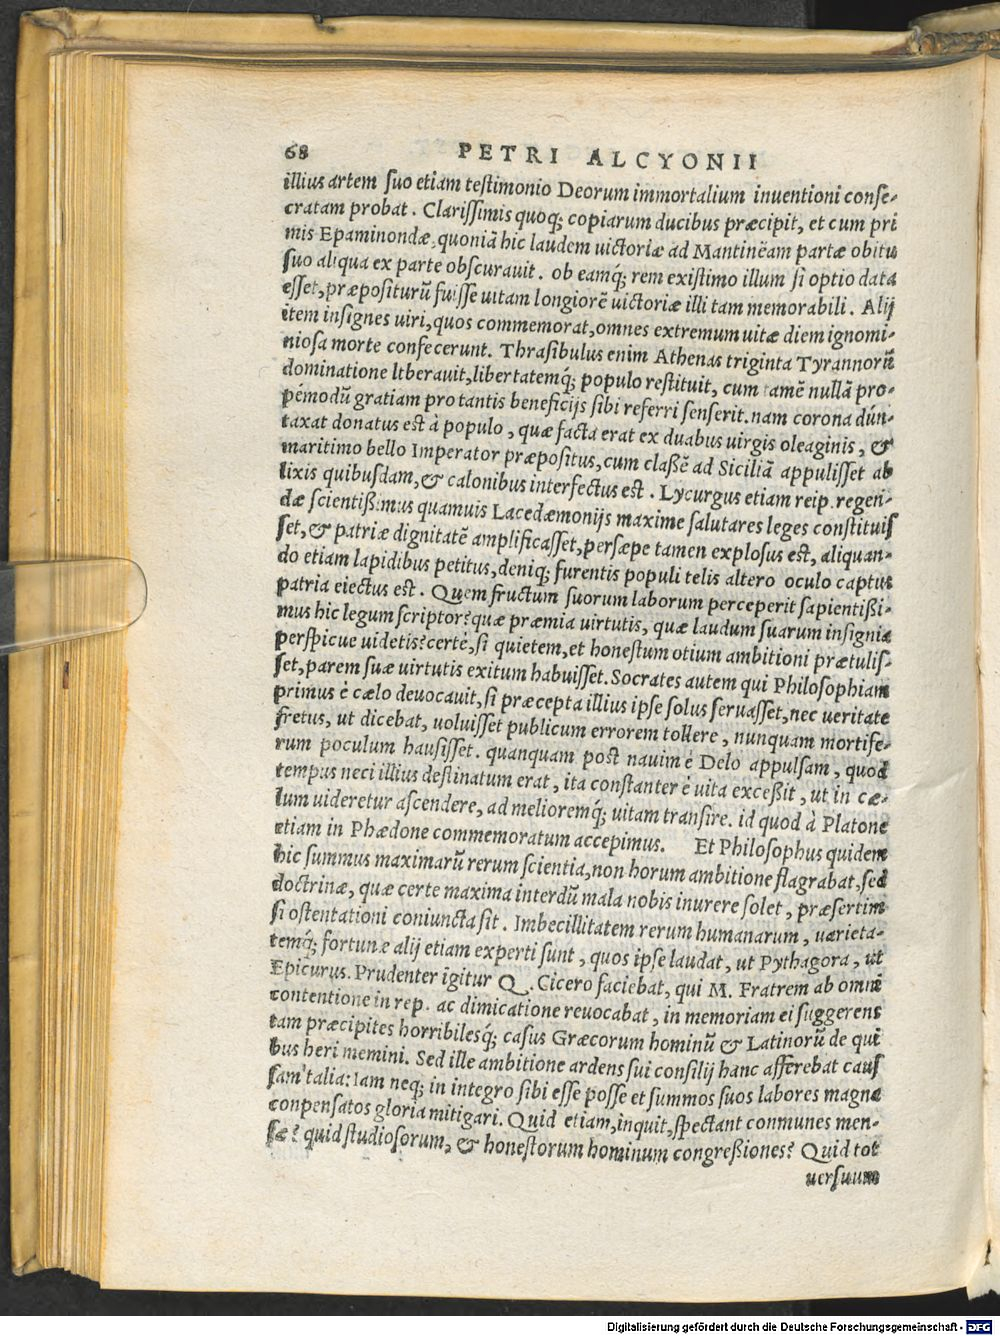 68 PETRI ALCYONII
illius artem suo etiam testimonio Deorum immortalium inuentioni conse-
cratam probat. Clarissimis quoq; copiarum ducibus præcipit, et cum pri
mis Epaminondæ, quoniã hic laudem uictoriæ ad Mantinēam partæ obitu
suo aliqua ex parte obscurauit. ob eamq́; rem existimo illum si optio data
esset, præpositurũ fuisse uitam longiorẽ uictoriæ illi tam memorabili. Alij
item insignes uiri, quos commemorat, omnes extremum uitæ diem ignomi-
niosa morte confecerunt. Thrasibulus enim Athenas triginta Tyrannorũ
dominatione ltberauit, libertatemq́; populo restituit, cum tamẽ nullã pro-
pémodũ gratiam pro tantis beneficijs sibi referri senserit. nam corona dún-
taxat donatus est à populo, quæ facta erat ex duabus uirgis oleaginis, &
maritimo bello Imperator præpositus, cum classẽ ad Siciliã appulisset ab
lixis quibusdam, & calonibus interfectus est. Lycurgus etiam reip. regen-
dæ scientissimus quamuis Lacedæmonijs maxime salutares leges constituis
set, & patriæ dignitatẽ amplificasset, persæpe tamen explosus est, aliquan-
do etiam lapidibus petitus, deniq; furentis populi telis altero oculo captus
patria eiectus est. Quem fructum suorum laborum perceperit sapientissi-
mus hic legum scriptor? quæ præmia uirtutis, quæ laudum suarum insignia
perspicue uidetis? certè, si quietem, et honestum otium ambitioni prætulis-
set, parem suæ uirtutis exitum habuisset. Socrates autem qui Philosophiam
primus è cælo deuocauit, si præcepta illius ipse solus seruasset, nec ueritate
fretus, ut dicebat, uoluisset publicum errorem tollere, nunquam mortife-
rum poculum hausisset. quanquam post nauim è Delo appulsam, quod
tempus neci illius destinatum erat, ita constanter è uita excessit, ut in cæ-
lum uideretur ascendere, ad melioremq́; uitam transire. id quod à Platone
etiam in Phædone commemoratum accepimus. Et Philosophus quidem
hic summus maximarũ rerum scientia, non horum ambitione flagrabat, sed
doctrinæ, quæ certe maxima interdũ mala nobis inurere solet, præsertim
si ostentationi coniuncta sit. Imbecillitatem rerum humanarum, uarieta-
temq́; fortunæ alij etiam experti sunt, quos ipse laudat, ut Pythagora, ut
Epicurus. Prudenter igitur Q. Cicero faciebat, qui M. Fratrem ab omni
contentione in rep. ac dimicatione reuocabat, in memoriam ei suggerens
tam præcipites horribilesq́; casus Græcorum hominũ & Latinorũ de qui
bus heri memini. Sed ille ambitione ardens sui consilij hanc afferebat caus
sam talia: Iam neq; in integro sibi esse posse et summos suos labores magna
conpensatos gloria mitigari. Quid etiam, inquit, spectant conmunes men-
sæ? quid studiosorum, & honestorum hominum congressiones? Quid tot
uersuum
Digitalisierung gefördert durch die Deutsche Forschungsgemeinschaft - DFG